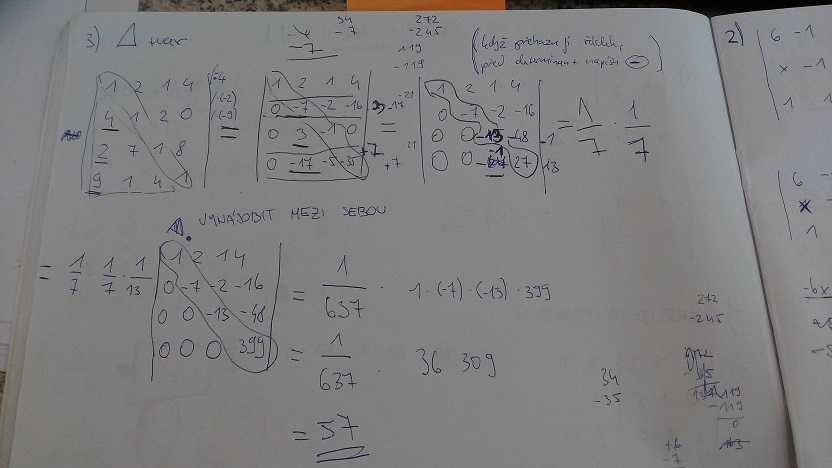 3) Δ tvar
-7
34
-7
272
-245
119
-119
(když přehazuji řádek,
před determinant napíšu ⊖)
2)
6 -1
x -1
1 1
1 2 1 4 | ·(-4)
4 1 2 0 | ·(-2)
2 7 1 8 | ·(-9)
9 1 4 1
=
1 2 1 4
0 -7 -2 -16
0 3 -1 0
0 -17 -5 -35
=
1 2 1 4
0 -7 -2 -16
0 0 -13 -48
0 0 -1 27
= 1/7 · 1/7
Δ. VYNÁSOBIT MEZI SEBOU
= 1/7 · 1/7 · 1/13
1 2 1 4
0 -7 -2 -16
0 0 -13 -48
0 0 0 399
= 1/637 · 1·(-7)·(-13)·399
= 1/637 · 36 309
= 57
34
-35
272
-245
119
-119
0
6
x
1
-6x